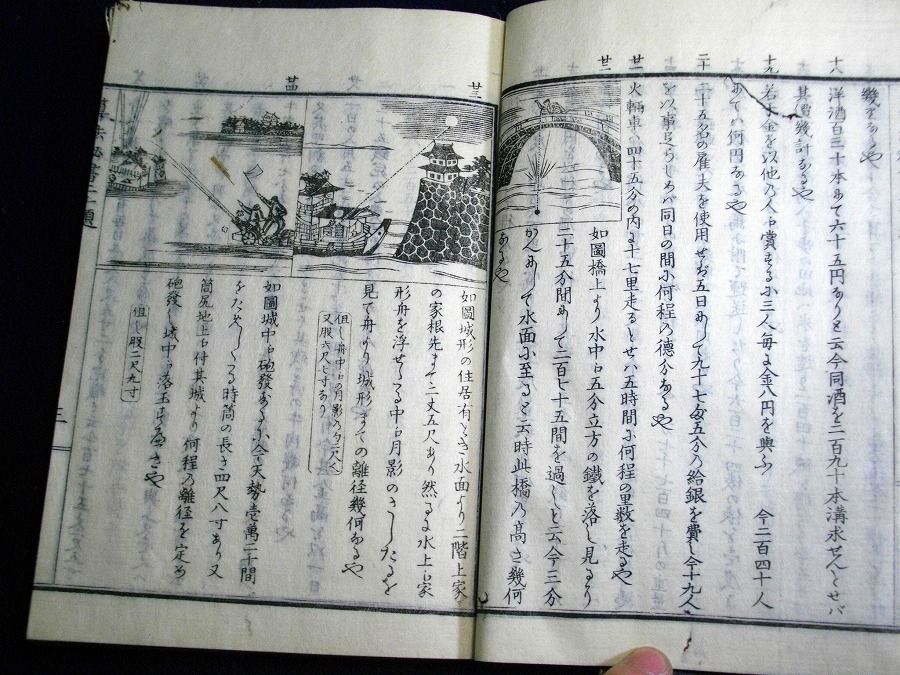 幾年なるや
十八 洋酒百三十本にて六十五円なりと云今同酒を二百九十本溝求せんとせバ
其費幾計なるや
十九 若干金を以他の人に賞するに三人毎に金八円を與ふ 今二百四十人
にてハ何円なるや
二十 十五名の雇夫を使用せるに五日にして九十七匁五分の給銀を費し今十九人
を以事足らしめバ同日の間に何程の德分なるや
廿一 火輪車ハ四十五分の内に十七里走るとせバ五時間に何程の里数を走るや
廿二
如圖橋上より水中に五分立方の鐵を落し見るより
二十五分間にして二百七十五間を過しと云今三分
かんにして水面に至ると云時此橋の高さ幾何
なるや
廿三
如圖城形の住居有とき水面より二階上家
の家根先まで二丈五尺あり然るに水上に家
形舟を浮せる中に月影のさしたるを
見て舟より城形までの離径幾何なるや
但し舟中に月影の勺二尺
又股六尺七寸あり
廿四
如圖城中に砲發するに仝天勢壱萬二千間
をたもしくる時筒の長さ四尺八寸あり又
筒尻地上に付其城より何程の離径を定め
砲發し城中に落玉すべきや
但し股二尺九寸